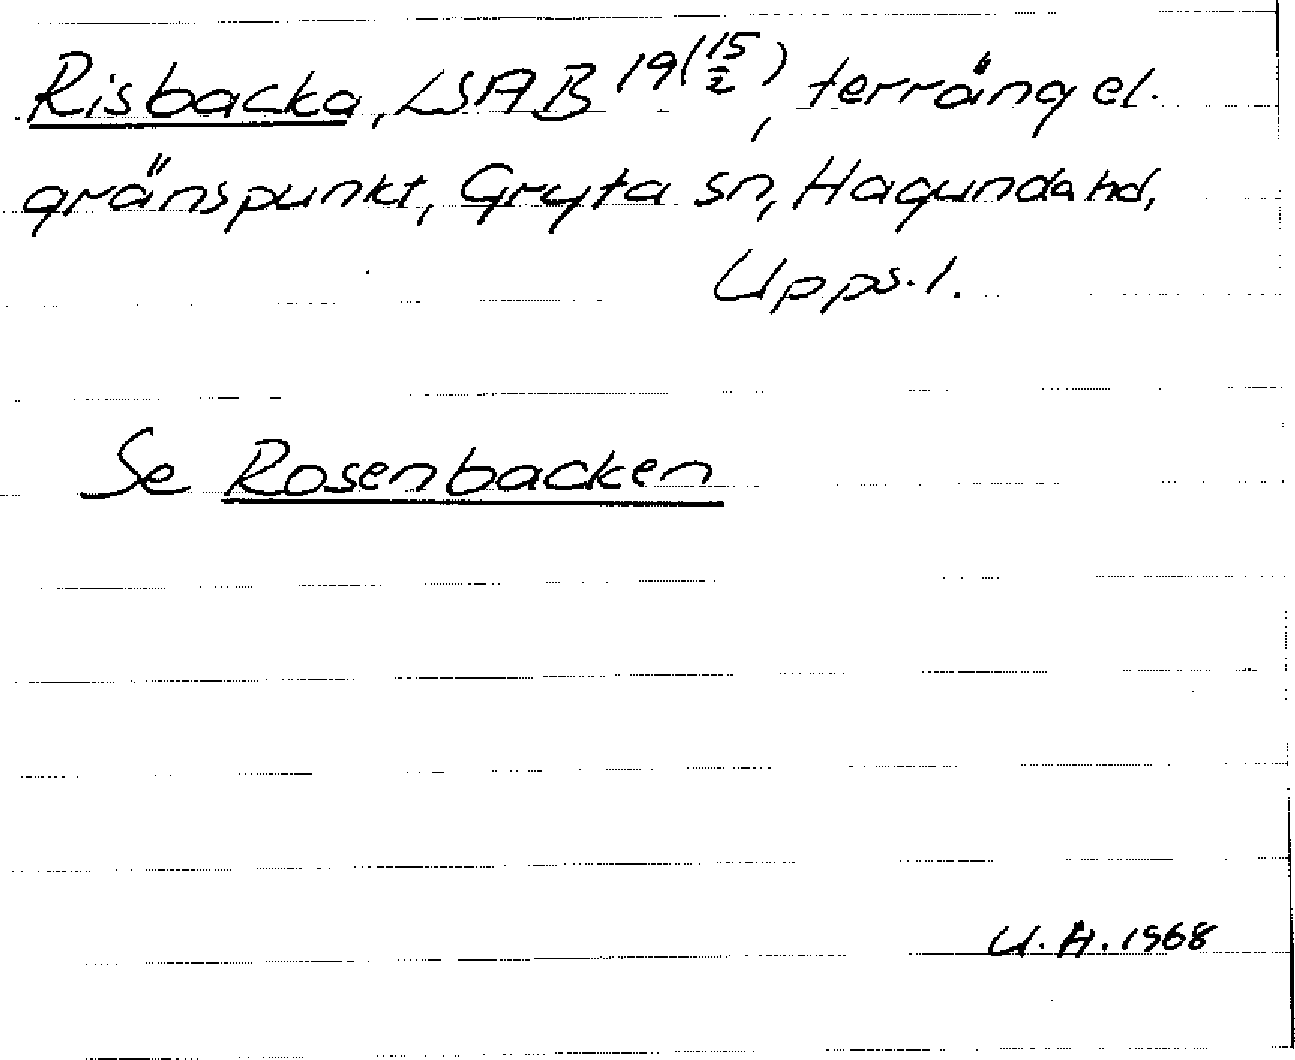 Risbacka, LSA B 19(15/2), terräng el.
gränspunkt, Gryta sn, Hagunda hd,
Upps. l.
Se Rosenbacken
U. H. 1968